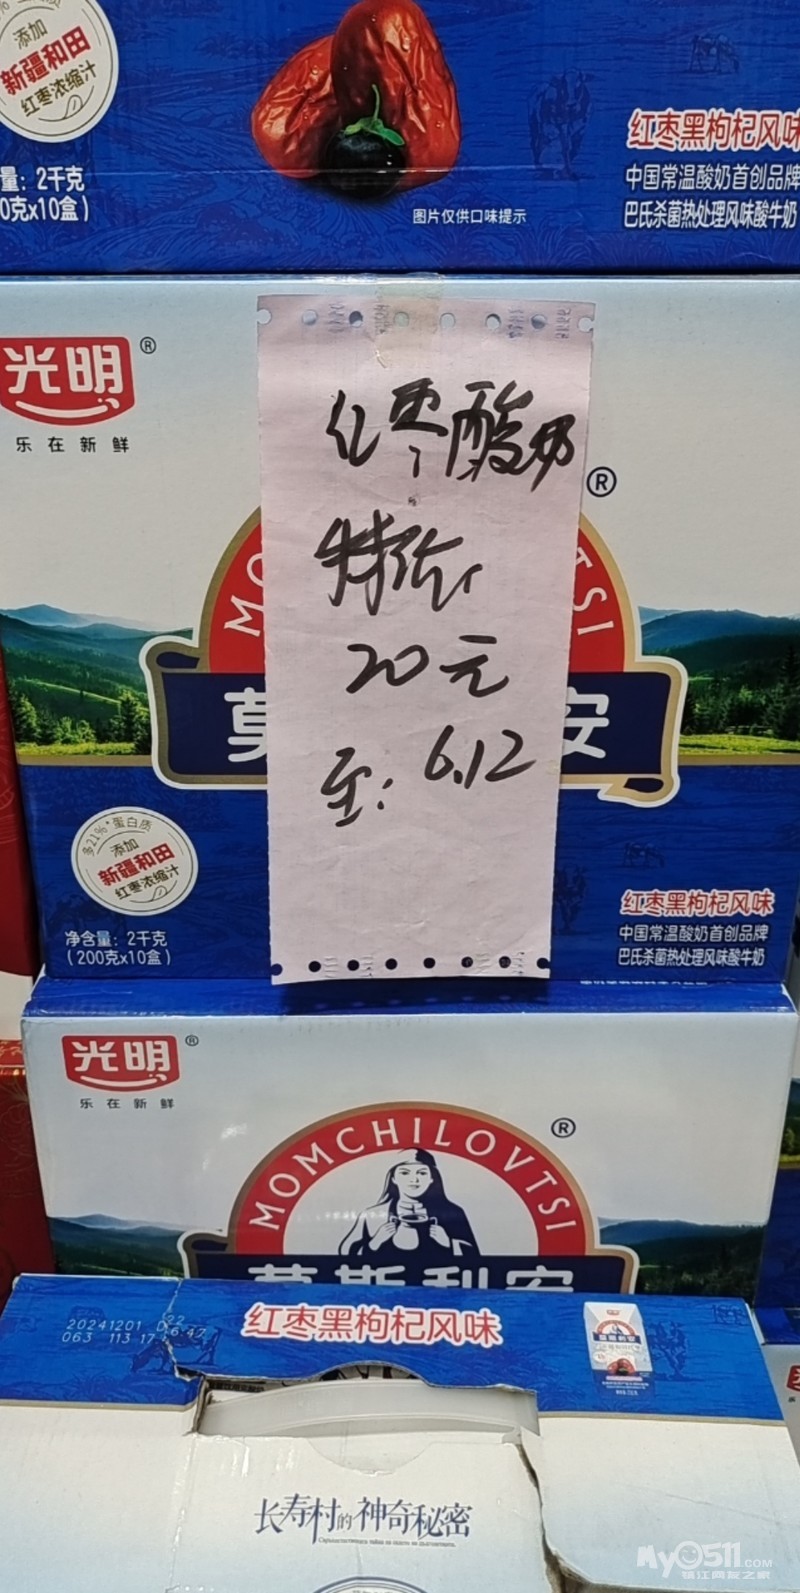 添加
新疆和田
红枣浓缩汁
量：2千克
0克x10盒）
图片仅供口味提示
红枣黑枸杞风味
中国常温酸奶首创品牌
巴氏杀菌热处理风味酸牛奶
光明®
乐在新鲜
红枣酸奶
特价
20元
至：6.12
®
MO
TSI
莫
安
多21%*蛋白质
添加
新疆和田
红枣浓缩汁
净含量：2千克
（200克x10盒）
红枣黑枸杞风味
中国常温酸奶首创品牌
巴氏杀菌热处理风味酸牛奶
光明®
乐在新鲜
®
MOMCHILOVTSI
莫斯利安
20241201
063 113 17
6:47
红枣黑枸杞风味
长寿村的神奇秘密
My0511.com
镇江网友之家